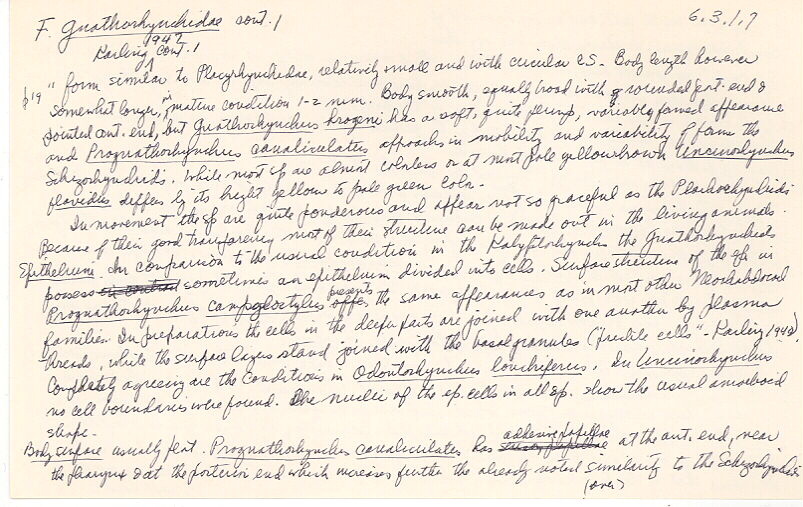 F. Gnathorhynchidae cont. 1
6.3.1.7
Karling 1947 cont. 1
p 19 " form similar to Placorhynchidae, relatively small and with circular CS - Body length however
somewhat longer, in mature condition 1-2 mm. Body smooth, equally broad with a rounded post. end &
pointed ant. end, but Gnathorhynchus krogeni has a soft, quite plump, variably formed appearance
and Prognathorhynchus canaliculatus approaches in mobility and variability of form the
Schizorhynchids. While most sp are almost colorless or at most pale yellowbrown Uncinorhynchus
flavidus differs by its bright yellow to pale green color -
In movement the sp are quite ponderous and appear not so graceful as the Placorhynchids
Because of their good transparency most of their structure can be made out in the living animals.
Epithelium. In comparison to the usual condition in the Kalyptorhynchs the Gnathorhynchids
possess sometimes an epithelium divided into cells. Surface structure of the epi in
Prognathorhynchus campylostylus presents the same appearances as in most other Neorhabdocoel
families. In preparations the cells in the deeper parts are joined with one another by plasma
threads, while the surface layers stand joined with the basal granules ("fertile cells" - Karling 1940).
Completely agreeing are the conditions in Odontorhynchus lonchiferus. In Uncinorhynchus
no cell boundaries were found. The nuclei of the ep. cells in all sp. show the usual amoeboid
shape -
Body surface usually flat. Prognathorhynchus canaliculatus has adhesive papillae at the ant. end, near
the pharynx & at the posterior end which increases further the already noted similarity to the Schizorhynchids
(over)